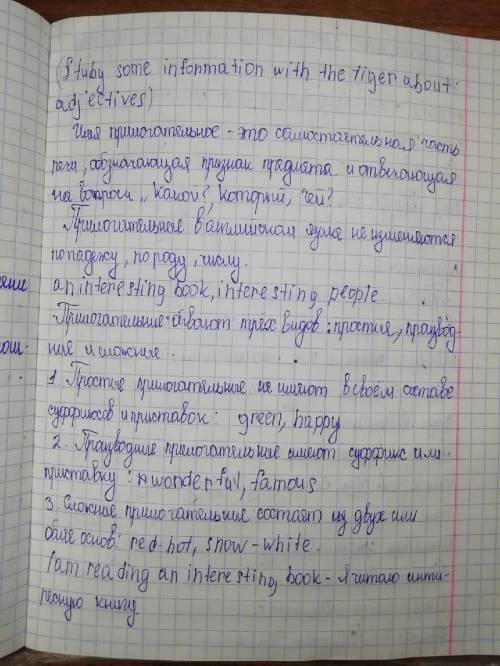 (Stuby some information with the tiger about
adjectives)
Имя прилогательное - это самостоятельная часть
речи, обозначающая признак предмета и отвечающая
на вопросы „ Какой? Который, чей?
Прилогательные в английском языке не изменяются
по падежу, по роду, числу.
ение an interesting book, interesting people.
Прилогательные бывают трёх видов: простые, празвод-
ош- ные и сложные.
1 Простые прилогательные не имеют в своём составе
суффиксов и приставок: green, happy
2. Празводные прилогательные имеют суффикс или
приставку: wonderful, famous
3. Сложные прилогательные состоят из двух или
более основ: red-hot, snow-white.
I am reading an interesting book - Я читаю инти-
ресную книгу.